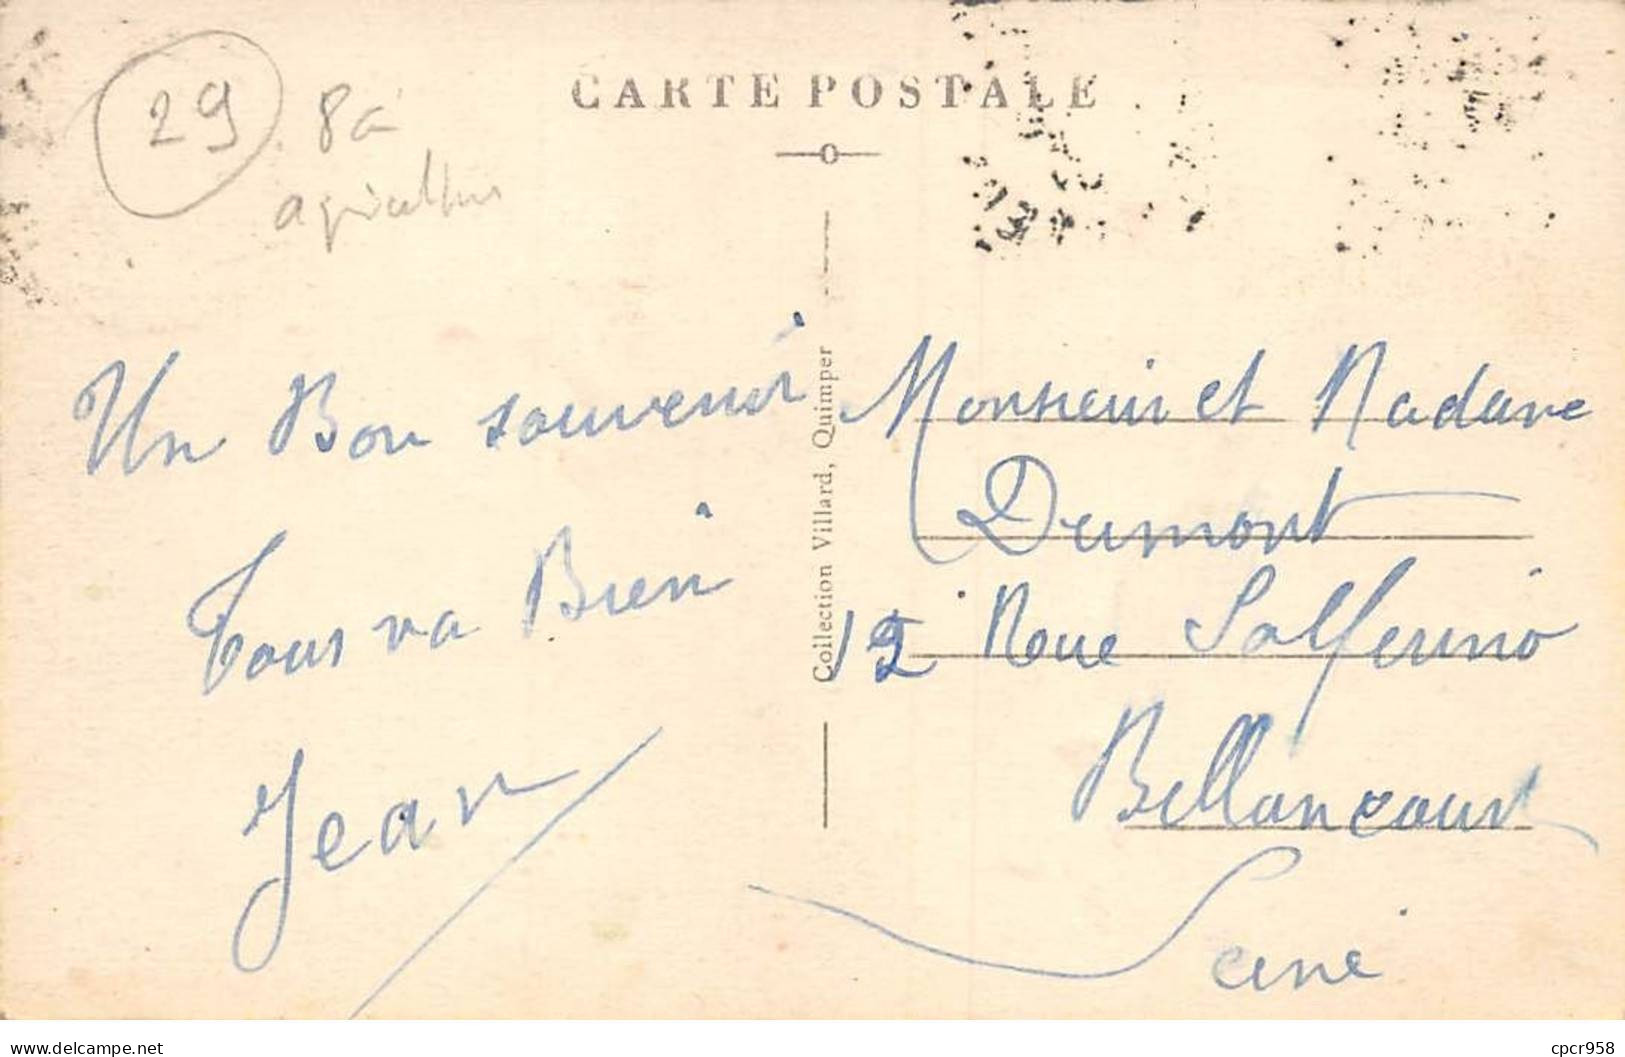 CARTE POSTALE
29
8a
agriculture
Un Bon souvenir
Tous va Bien
Jean
Collection Villard, Quimper
Monsieur et Madame
Dumont
12 Roue Solferino
Billancourt
Seine
www.delcampe.net
cpcr958